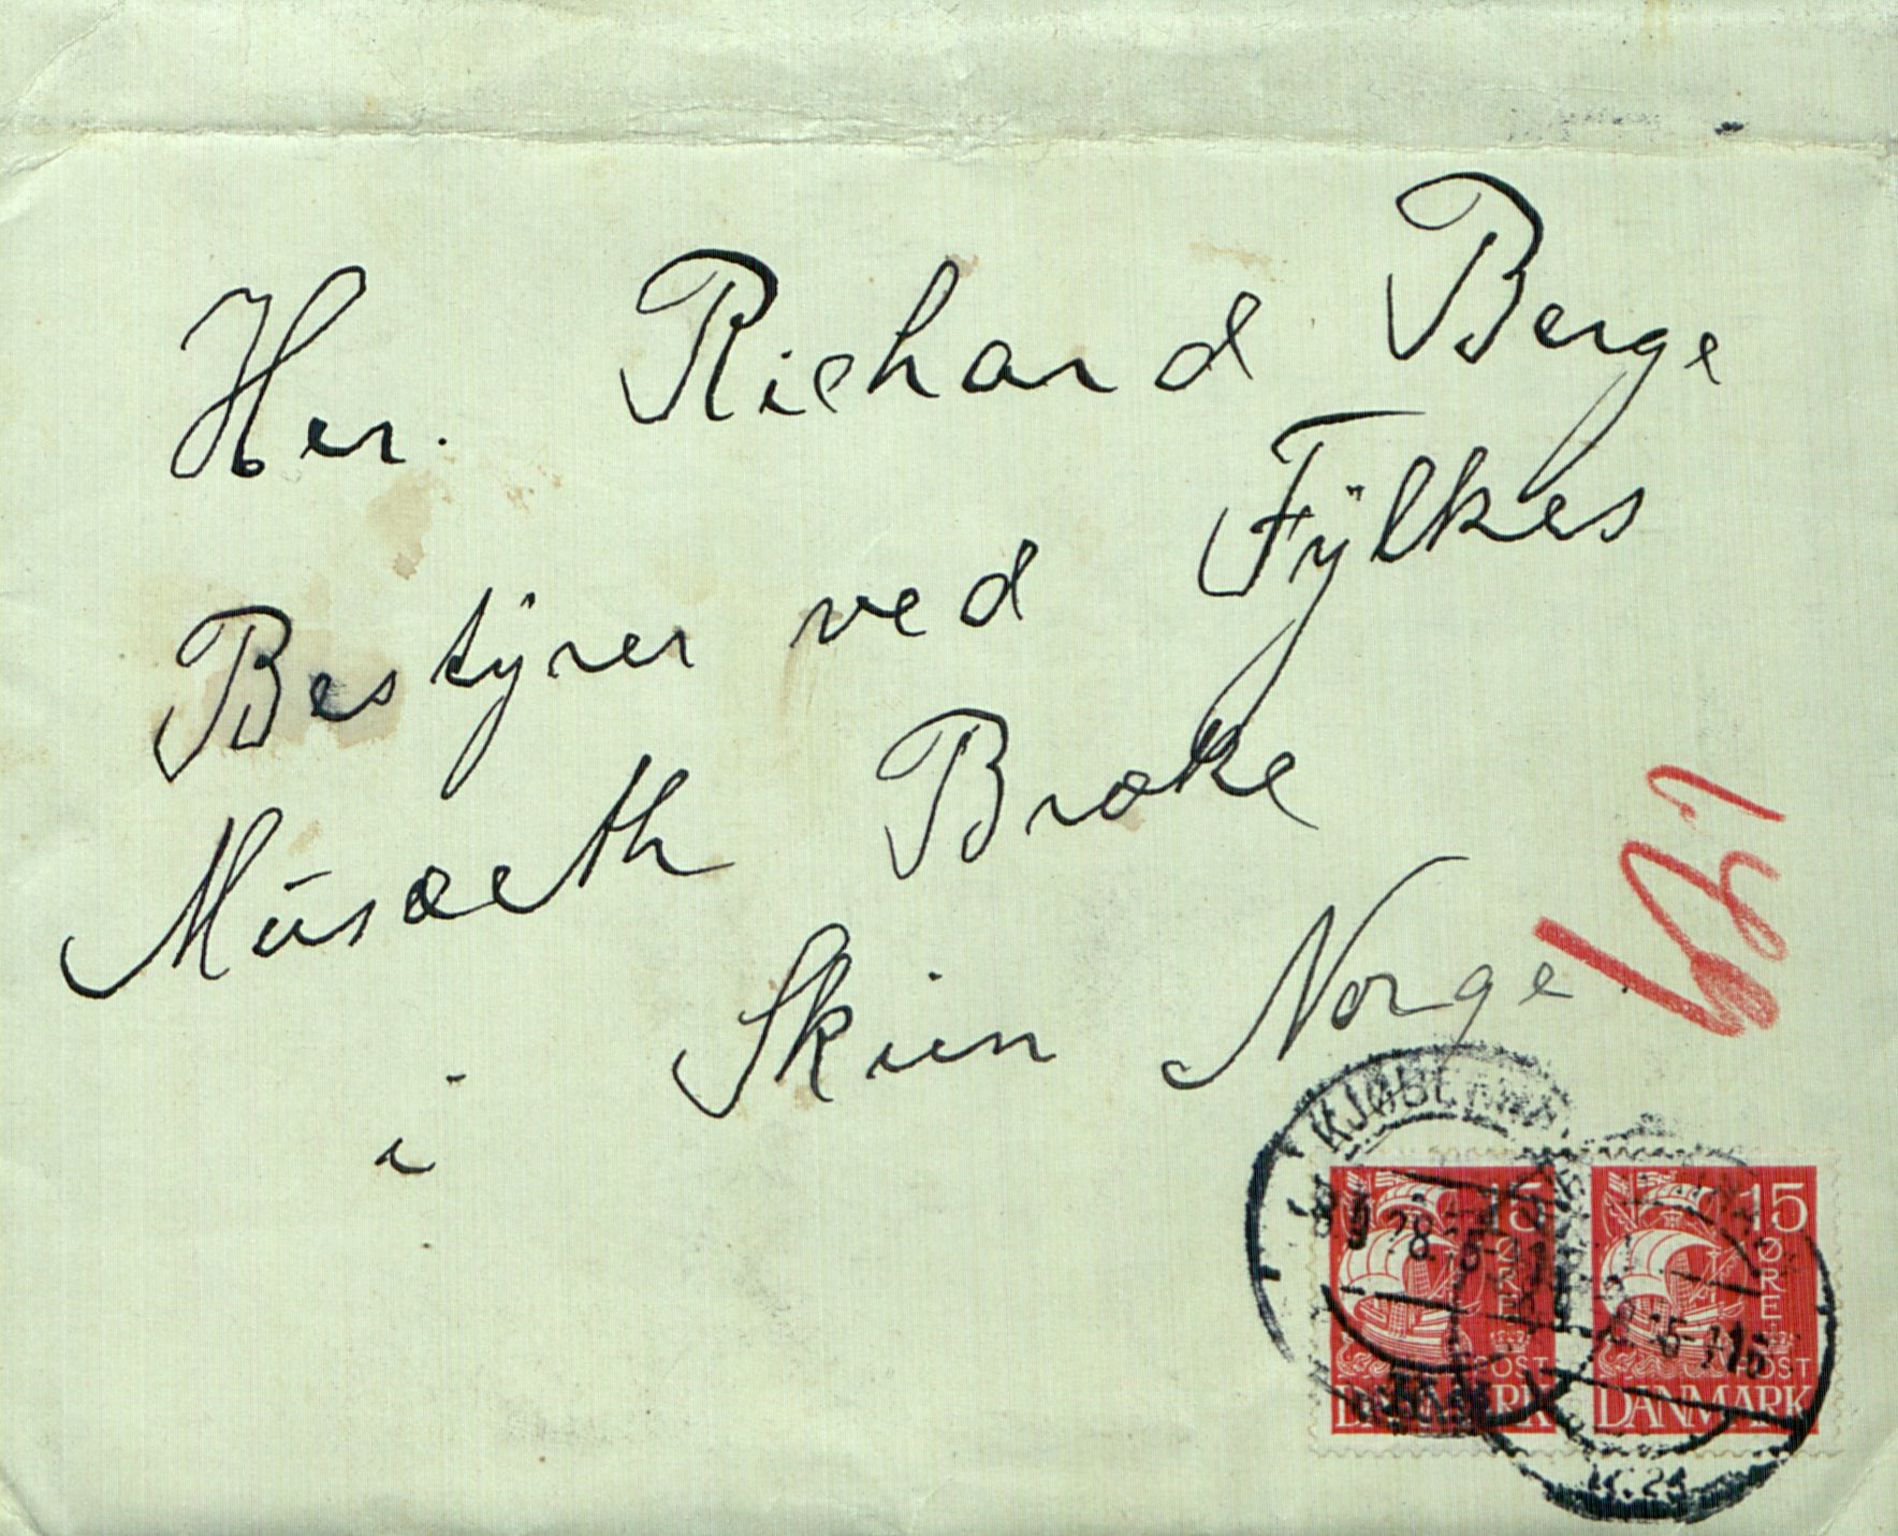 Her. Richard Berge
Bestÿrer ved Fÿlkes
Musæeth Bræke
i Skien Norge.
KJØBENH
15 ØRE
POST
DANMARK
15 ØRE
POST
DANMARK